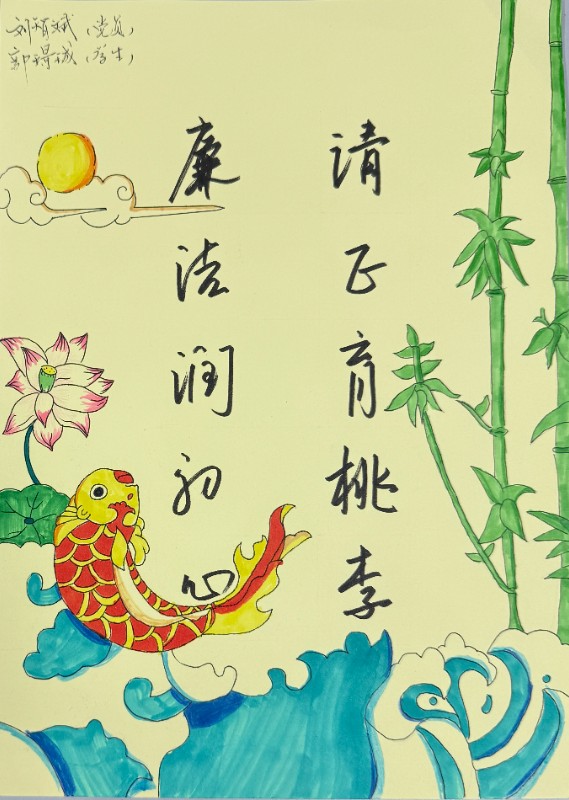 刘斌（党员）
郭璟（学生）
清正育桃李
廉洁润初心